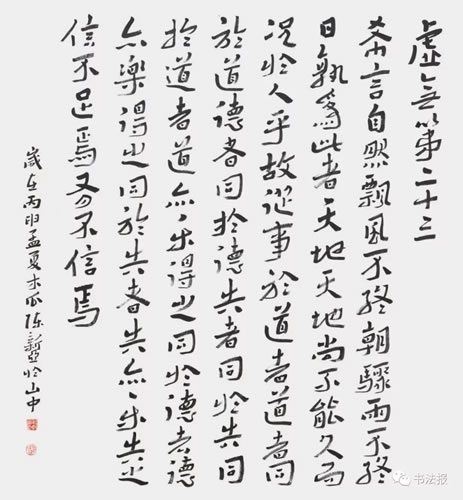 虛無第二十三
希言自然飄風不終朝驟雨不終
日孰為此者天地天地尚不能久而
況於人乎故從事於道者道者同
於道德者同於德失者同於失同
於道者道亦乐得之同於德者德
亦樂得之同於失者失亦乐失之
信不足焉有不信焉
歲在丙申孟夏木瓜陈新亞於山中
书法报